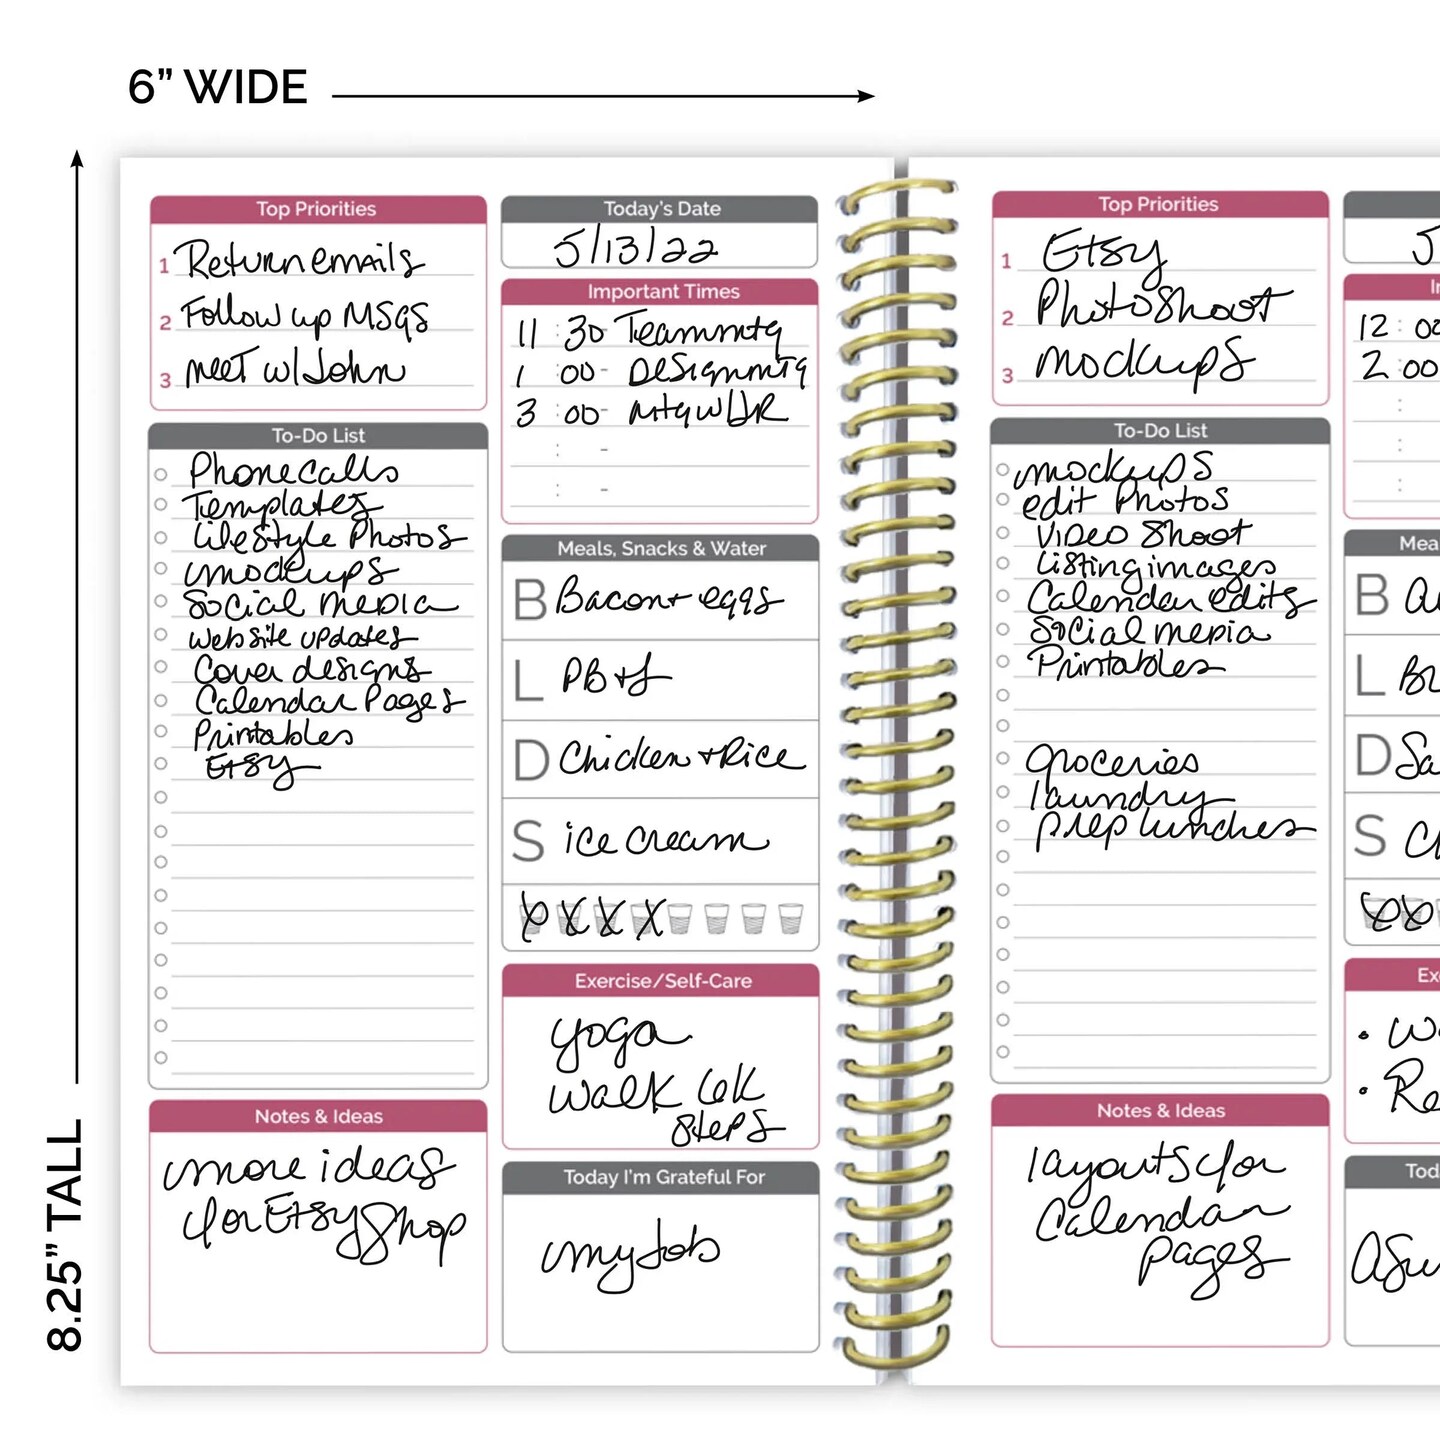 6” WIDE
8.25” TALL
Top Priorities
1 Return emails
2 Follow up MSGS
3 meet w/ John
To-Do List
Phone calls
Templates
Lifestyle Photos
mockups
Social media
website updates
Cover designs
Calendar Pages
Printables
Etsy
Notes & Ideas
more ideas
for Etsy Shop
Today's Date
5/13/22
Important Times
11 : 30 - Team mtg
1 : 00 - Design mtg
3 : 00 - mtg w/
: -
: -
Meals, Snacks & Water
B Bacon + eggs
L PB+J
D Chicken + Rice
S ice cream
Exercise/Self-Care
yoga
walk 6k
steps
Today I'm Grateful For
my job
Top Priorities
1 Etsy
2 Photoshoot
3 mockups
To-Do List
mockups
edit Photos
Video Shoot
Listing images
Calendar edits
Social media
Printables
groceries
laundry
prep lunches
Notes & Ideas
layouts for
Calendar
pages
12 : 00
2 : 00
:
:
:
B
L
D
S